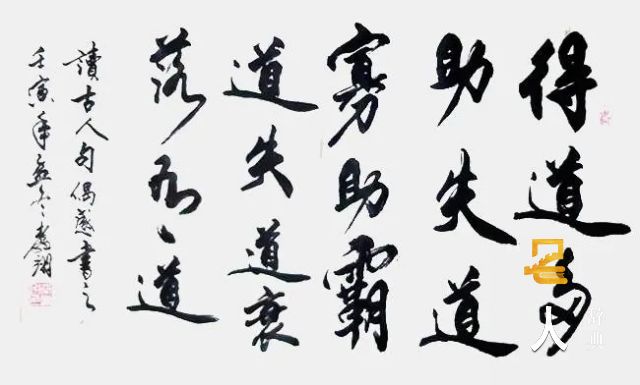 得道多
助失道
寡助霸
道失道衰
落道
讀古人句偶感書之
壬寅年孟冬翔
人